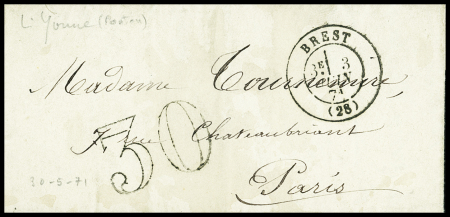 L'Yonne (Ponton)
BREST
3E 3
JUIN
71
(28)
Madame Tournemine
7 rue Chateaubriant
30
Paris
30-5-71